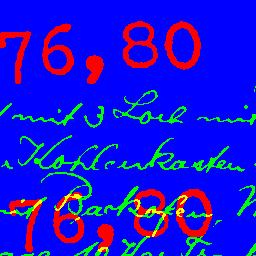 76,80
mit 3 Loch mit
Kohlenkasten
mit Backofen,
76,80